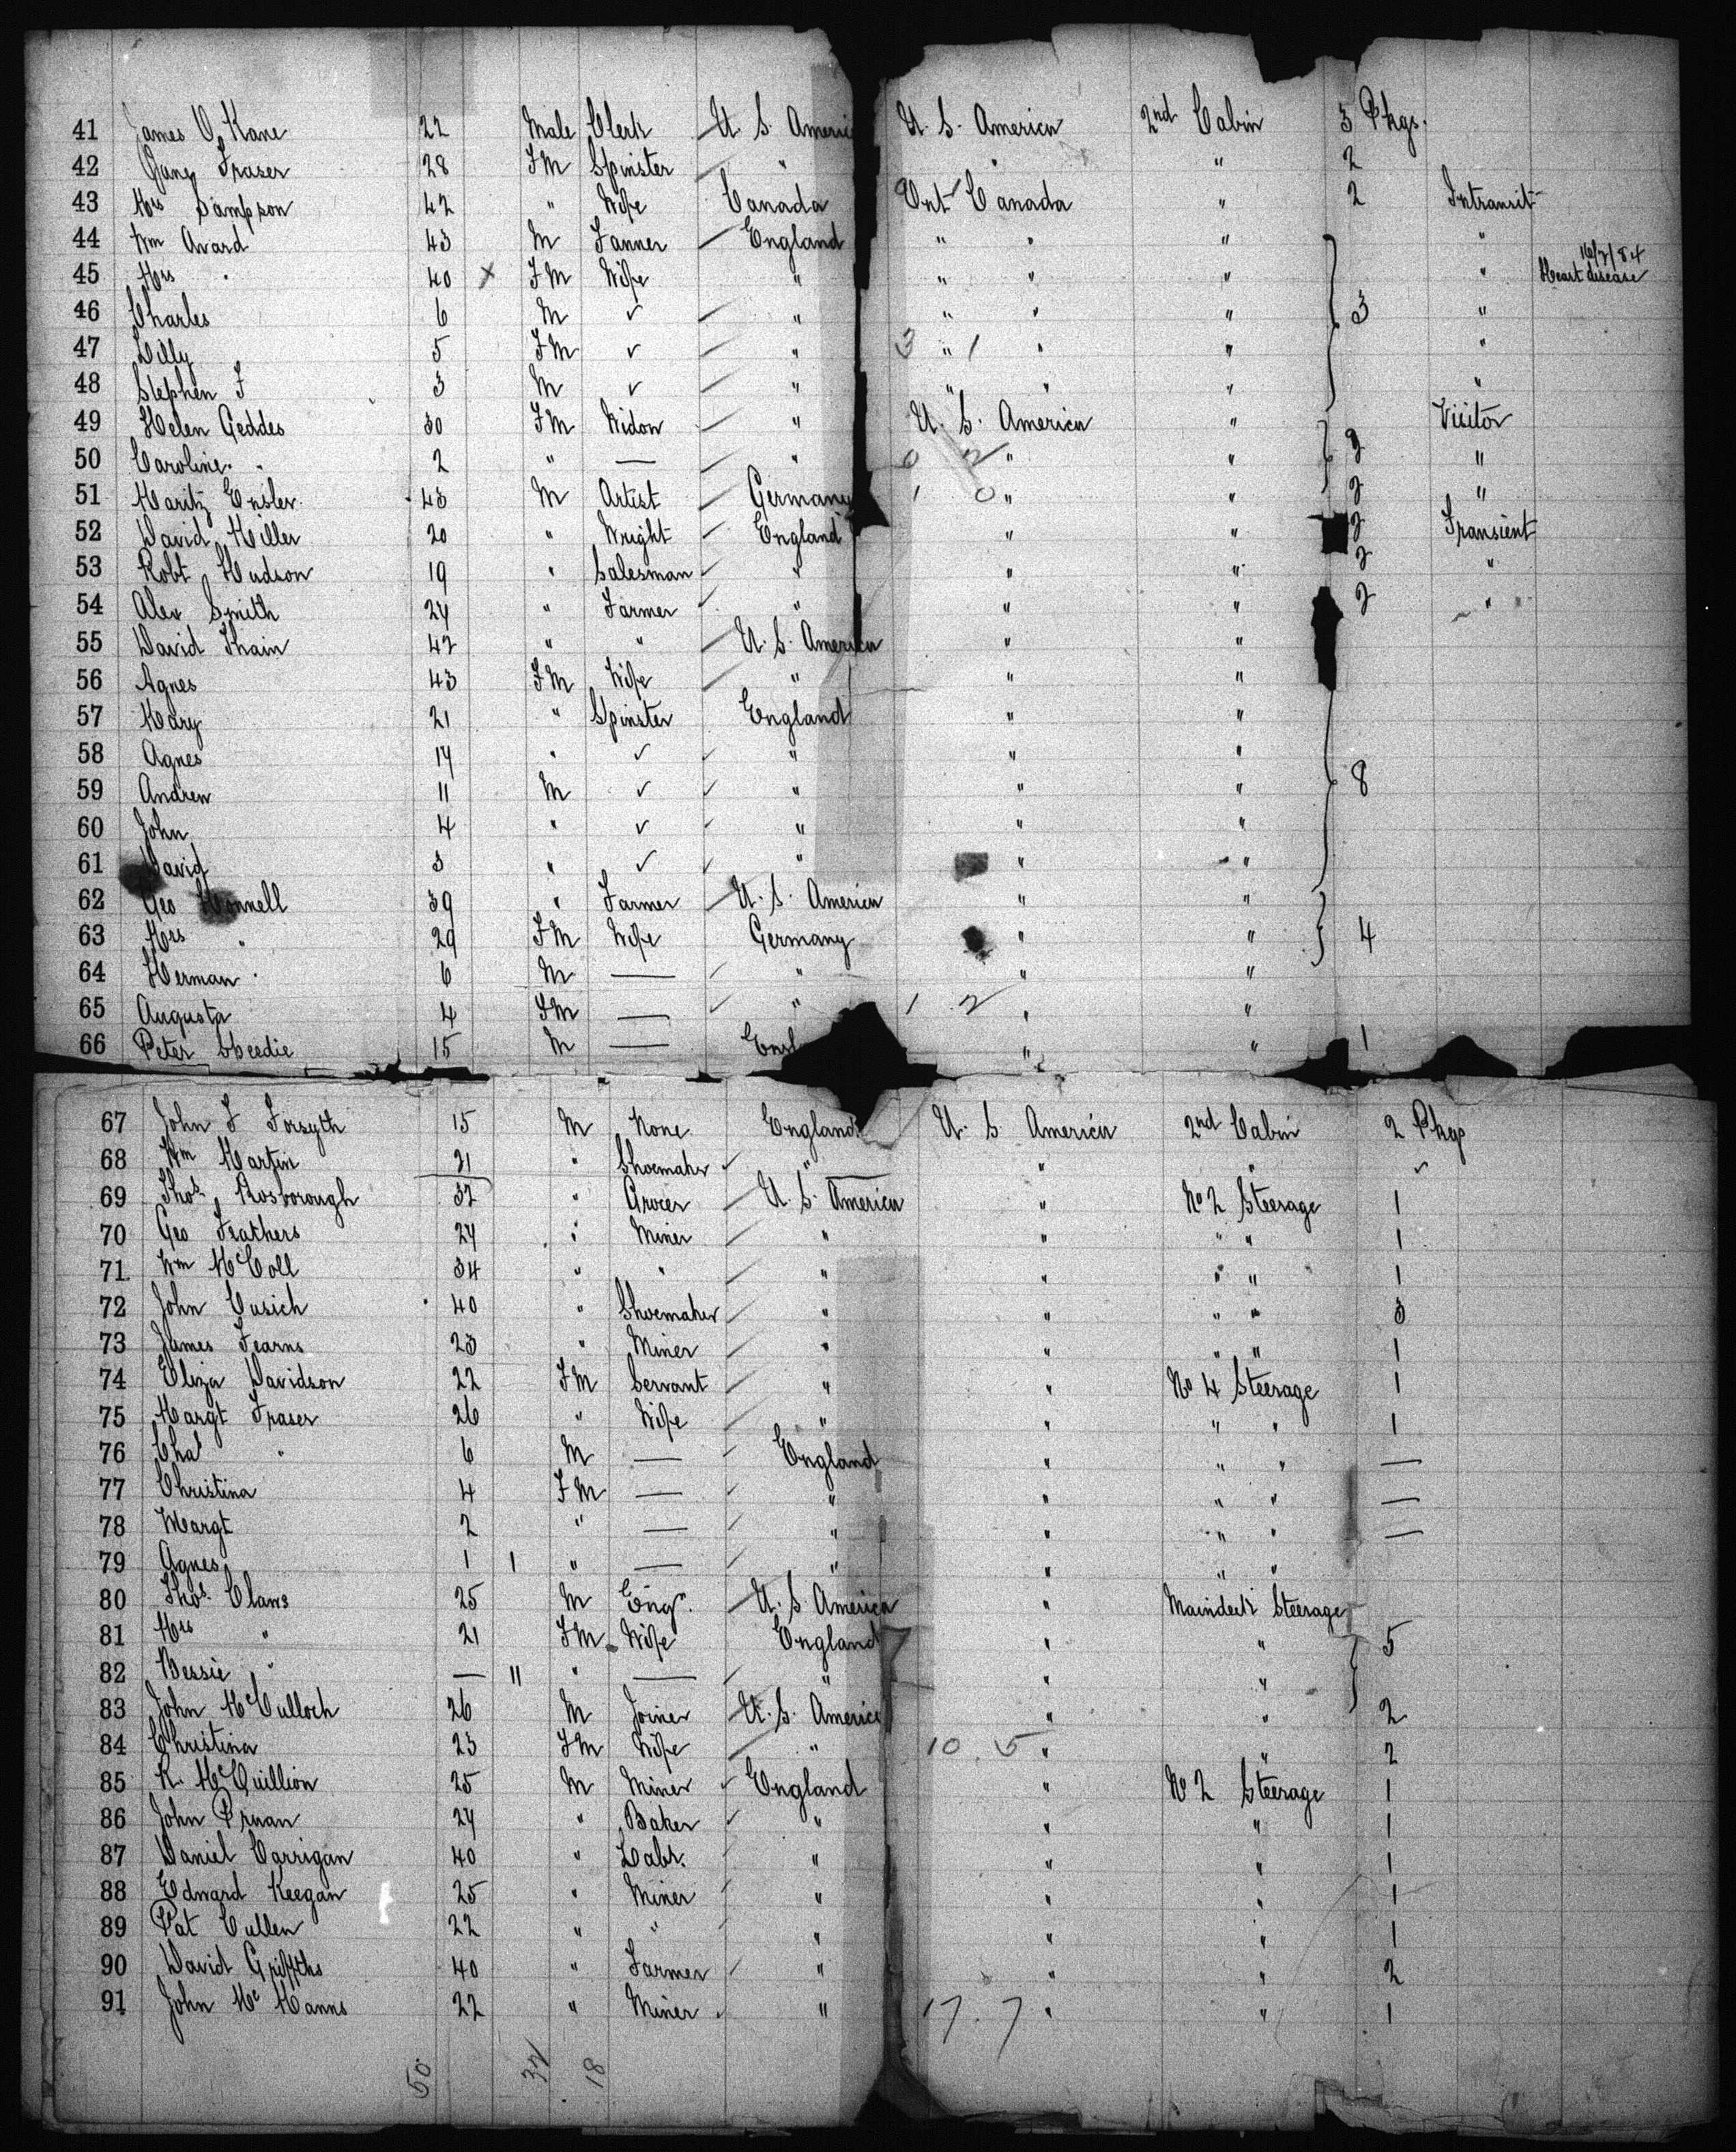 41 James O Kane 22 Male Clerk U. S. Americ U. S. America 2nd Cabin 3 Pkgs.
42 Jane Fraser 28 FM Spinster " " " 2
43 Mrs Sampson 42 " Wife Canada Ont Canada " 2 Intransit
44 Wm Avard 43 M Farmer England " " " "
16/7/84
45 Mrs " 40 X FM Wife " " " " " Heart disease
46 Charles 6 M ✓ " " " " 3 "
47 Lilly 5 FM ✓ " 3 " 1 " " "
48 Stephen F 3 M ✓ " " " " "
49 Helen Geddes 30 FM Widow " U. S. America " Visitor
50 Caroline " 2 " — " 0 2 " " 2 "
51 Maritz Ensler 43 M Artist Germany 1 0 " " 2 "
52 David Miller 20 " Wright England " " 2 Transient
53 Robt Hudson 19 " Salesman " " " 2 "
54 Alex Smith 24 " Farmer " " " 2 "
55 David Thain 42 " " U. S. America " "
56 Agnes 43 FM Wife " " "
57 Mary 21 " Spinster England " "
58 Agnes 14 " ✓ " " "
59 Andrew 11 M ✓ " " " 8
60 John 4 " ✓ " " "
61 David 3 " ✓ " " "
62 Geo 39 " Farmer U. S. America " "
63 Mrs " 29 FM Wife Germany " " 4
64 Herman " 6 M — " " "
65 Augusta 4 FM — " 1 2 " "
66 Peter Speedie 15 M — Engl " " 1
67 John F Forsyth 15 M None England U. S. America 2nd Cabin 2 Pkgs
68 Wm Martin 21 " Shoemaker " " " ✓
69 Thos. Rosborough 32 " Grocer U. S. America " No 2 Steerage 1
70 Geo Feathers 24 " Miner " " " " 1
71 Wm McColl 34 " " " " " " 1
72 John Cusick 40 " Shoemaker " " " " 3
73 James Fearns 23 " Miner " " " " 1
74 Eliza Davidson 22 FM Servant " " No 4 Steerage 1
75 Margt Fraser 26 " Wife " " " " 1
76 Chas " 6 M — England " " " —
77 Christina 4 FM — " " " " —
78 Margt 2 " — " " " " —
79 Agnes 1 1 " — " " " "
80 Thos. Claws 25 M Engr. U. S. America " Maindeck Steerage
81 Mrs " 21 FM Wife England " " 5
82 Bessie " — 11 " — " " "
83 John McCulloch 26 M Joiner U. S. America " " 2
84 Christina 23 FM Wife " 10 5 " " 2
85 R. McQuillion 25 M Miner England " No 2 Steerage 1
86 John Pruan 24 " Baker " " " 1
87 Daniel Carrigan 40 " Labr. " " " 1
88 Edward Keegan 25 " Miner " " " 1
89 Pat Cullen 22 " " " " " 1
90 David Griffths 40 " Farmer " " " 2
91 John Mc Manns 22 " Miner " 17 7 " " 1
50 32 18